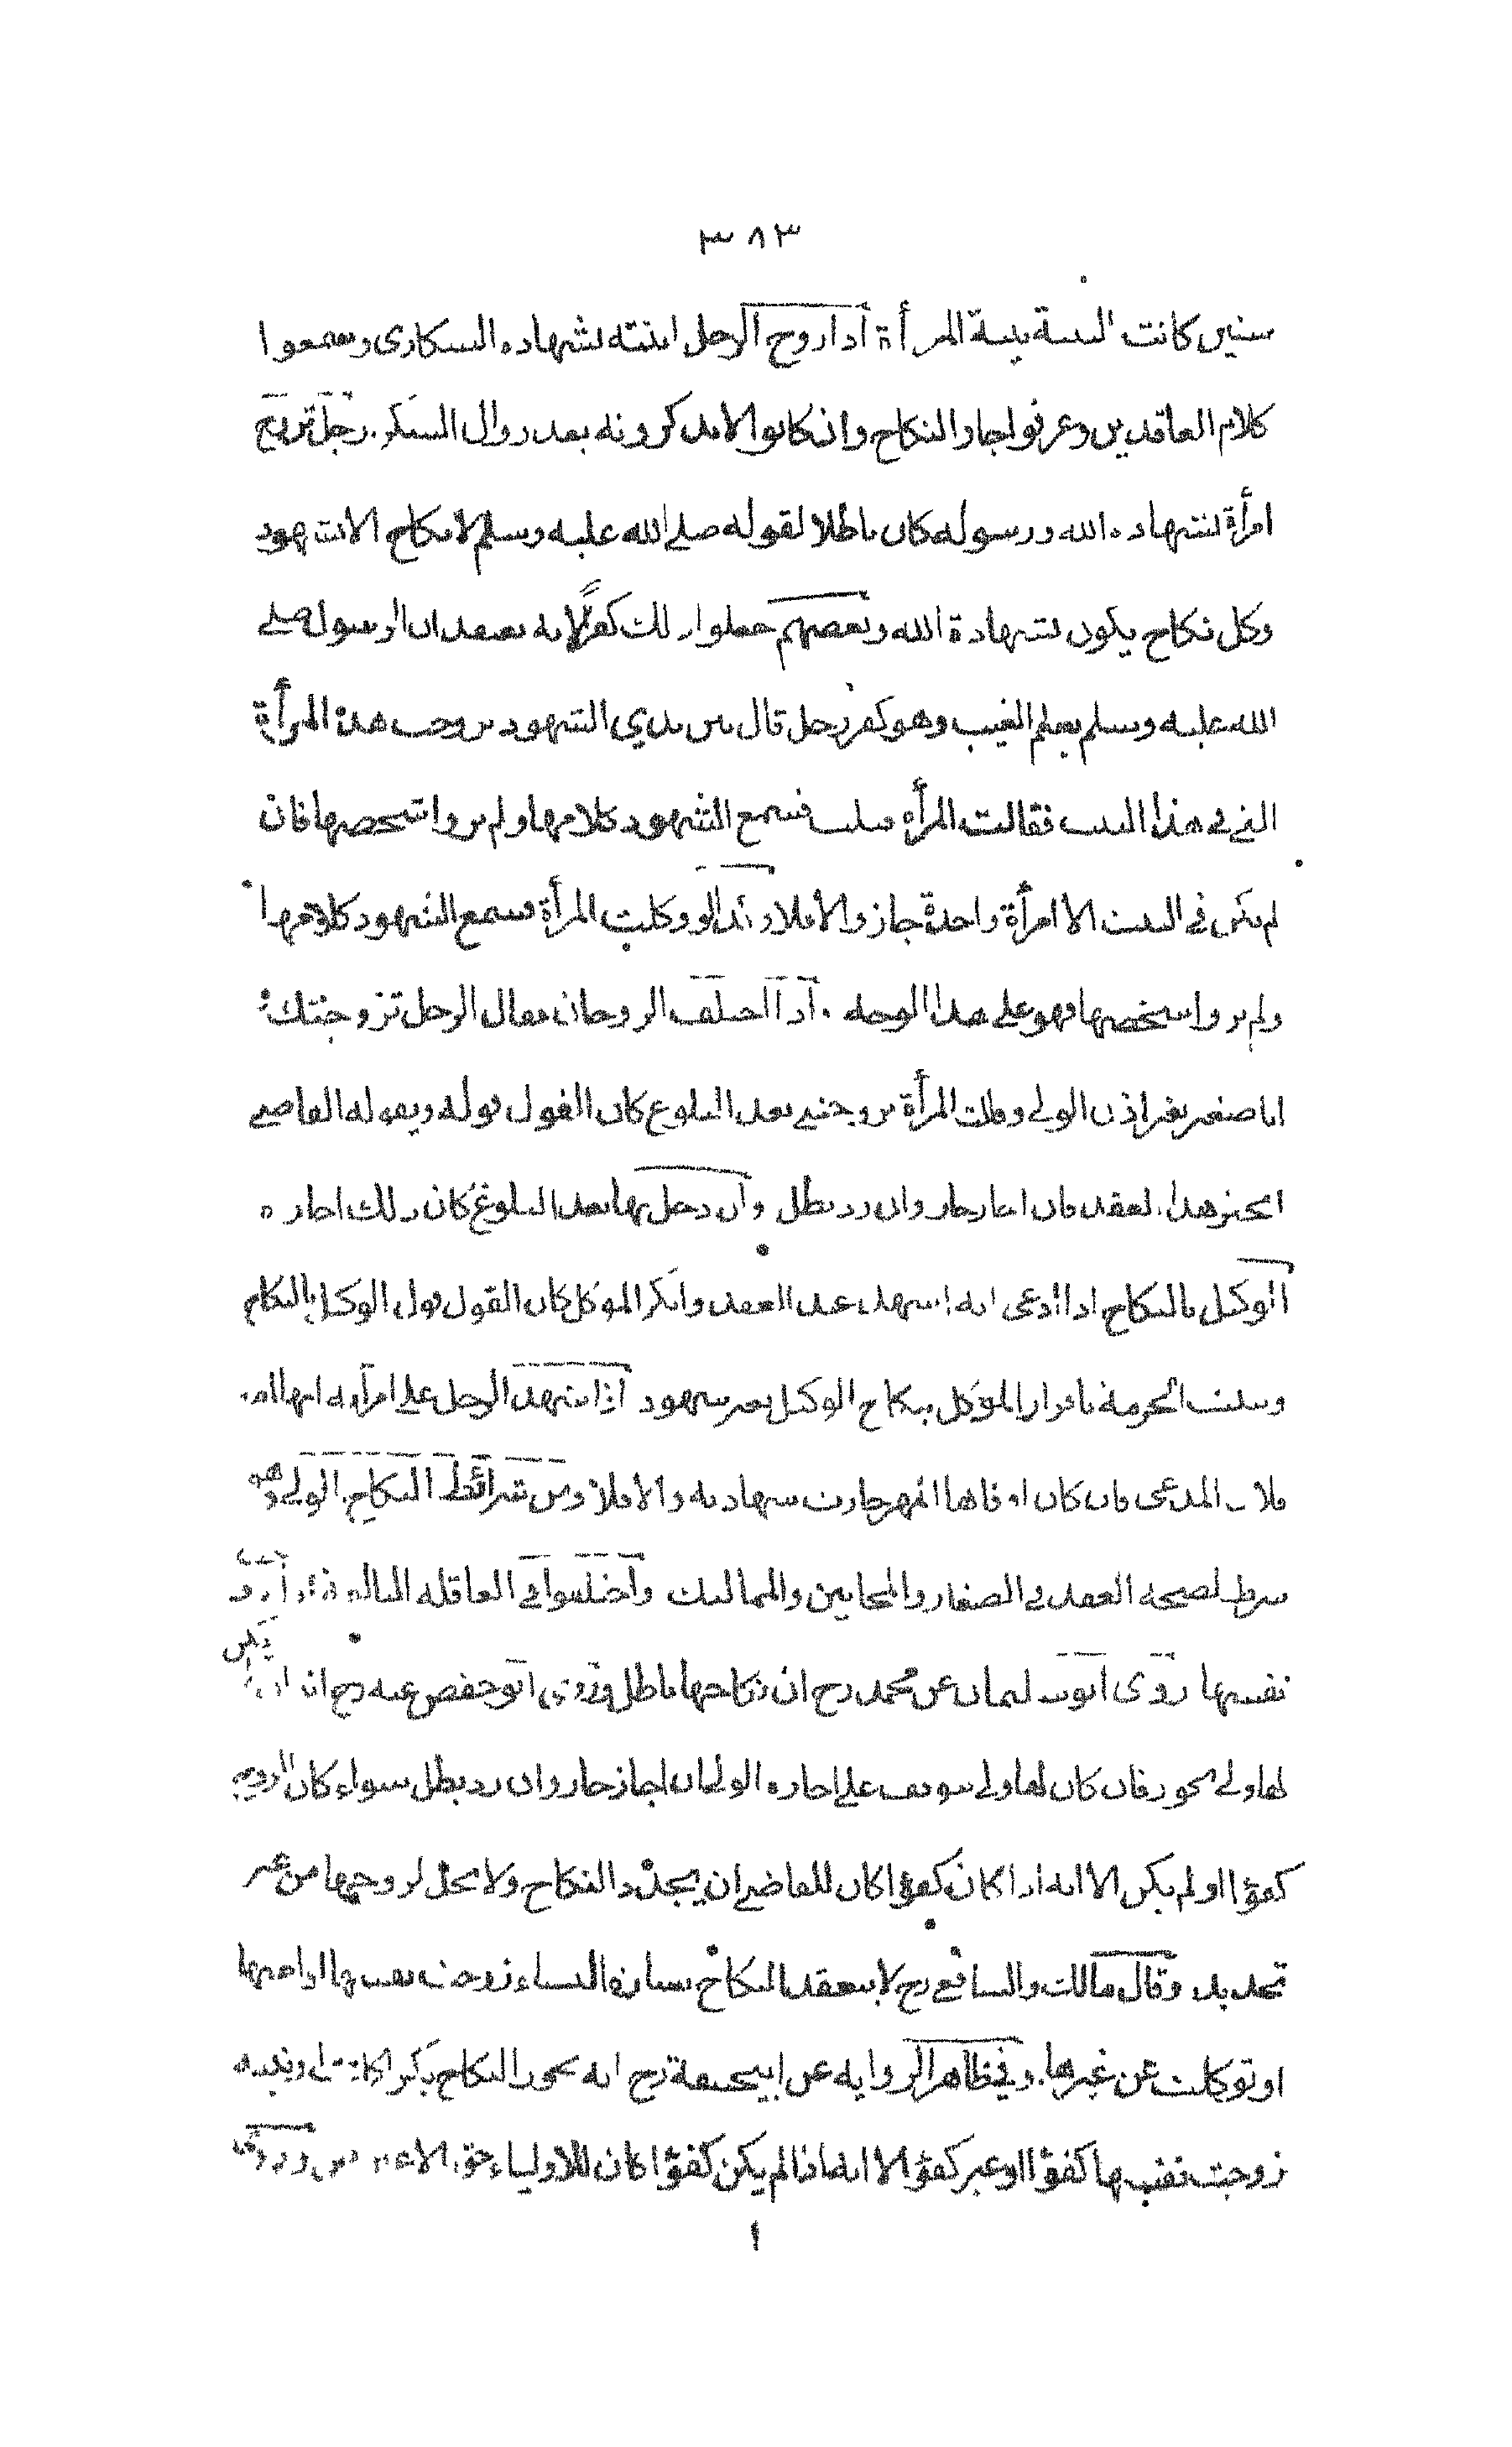 ٣٨٣
سنين كانت البينة بينة المرأة اذا زوج الرجل ابنته بشهادة السكارى وسمعوا
كلام العاقدين وعرفوا جاز النكاح وان كانوا لا يذكرونه بعد زوال السكر. رجل تزوج
امرأة بشهادة الله ورسوله كان باطلا لقوله صلى الله عليه وسلم لا نكاح الا بشهود
وكل نكاح يكون بشهادة الله وبعضهم جعلوا ذلك كفرًا لانه يعتقد ان الرسول صلى
الله عليه وسلم يعلم الغيب وهو كفر رجل قال بين يدي الشهود تزوجت هذه المرأة
التي في هذا البيت فقالت المرأة قبلت فسمع الشهود كلامها ولم يروا شخصها فان
لم يكن في البيت الا امرأة واحدة جاز والا فلا وكذا لو وكلت المرأة فسمع الشهود كلامها
ولم يروا شخصها فهو على هذا الوجه. اذا اختلف الزوجان فقال الرجل تزوجتك و
انا صغير بغير اذن الولي وقالت المرأة تزوجتني بعد البلوغ كان القول قوله ويقول له القاضي
اتجيز هذا العقد فان اجاز جاز وان رد بطل وان دخل بها بعد البلوغ كان ذلك اجازة
الوكيل بالنكاح اذا ادعى انه اشهد عند العقد وانكر الموكل كان القول قول الوكيل بالنكاح
وتثبت الحرمة باقرار الموكل بنكاح الوكيل بغير شهود اذا شهد الرجل على امرأة انها امرأة
فلان المدعي فان كان اوفاها المهر جازت شهادته والا فلا ومن شرائط النكاح الولي وهو
شرط لصحة العقد في الصغار والمجانين والمماليك واختلفوا في العاقلة البالغة اذا زوجت
نفسها روى ابو سليمان عن محمد رح ان نكاحها باطل وروى ابو حفص عنه رح ان لم يكن
لها ولي يجوز فان كان لها ولي يتوقف على اجازة الولي ان اجاز جاز وان رد بطل سواء كان الزوج
كفؤا او لم يكن الا انه اذا كان كفؤا كان للقاضي ان يجدد النكاح ولا يحل لزوجها من غير
تجديد وقال مالك والشافعي رح لا ينعقد النكاح بعبارة النساء زوجت نفسها او امتها
او توكلت عن غيرها. وفي ظاهر الرواية عن ابي حنيفة رح انه يجوز النكاح بكرا كانت او ثيبة
زوجت نفسها كفؤا او غير كفؤ الا انه اذا لم يكن كفؤا كان للاولياء حق الاعتراض